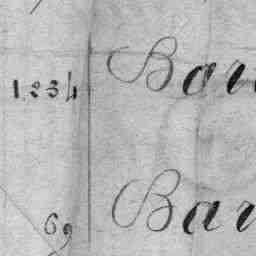 1234 Bar
69 Bar